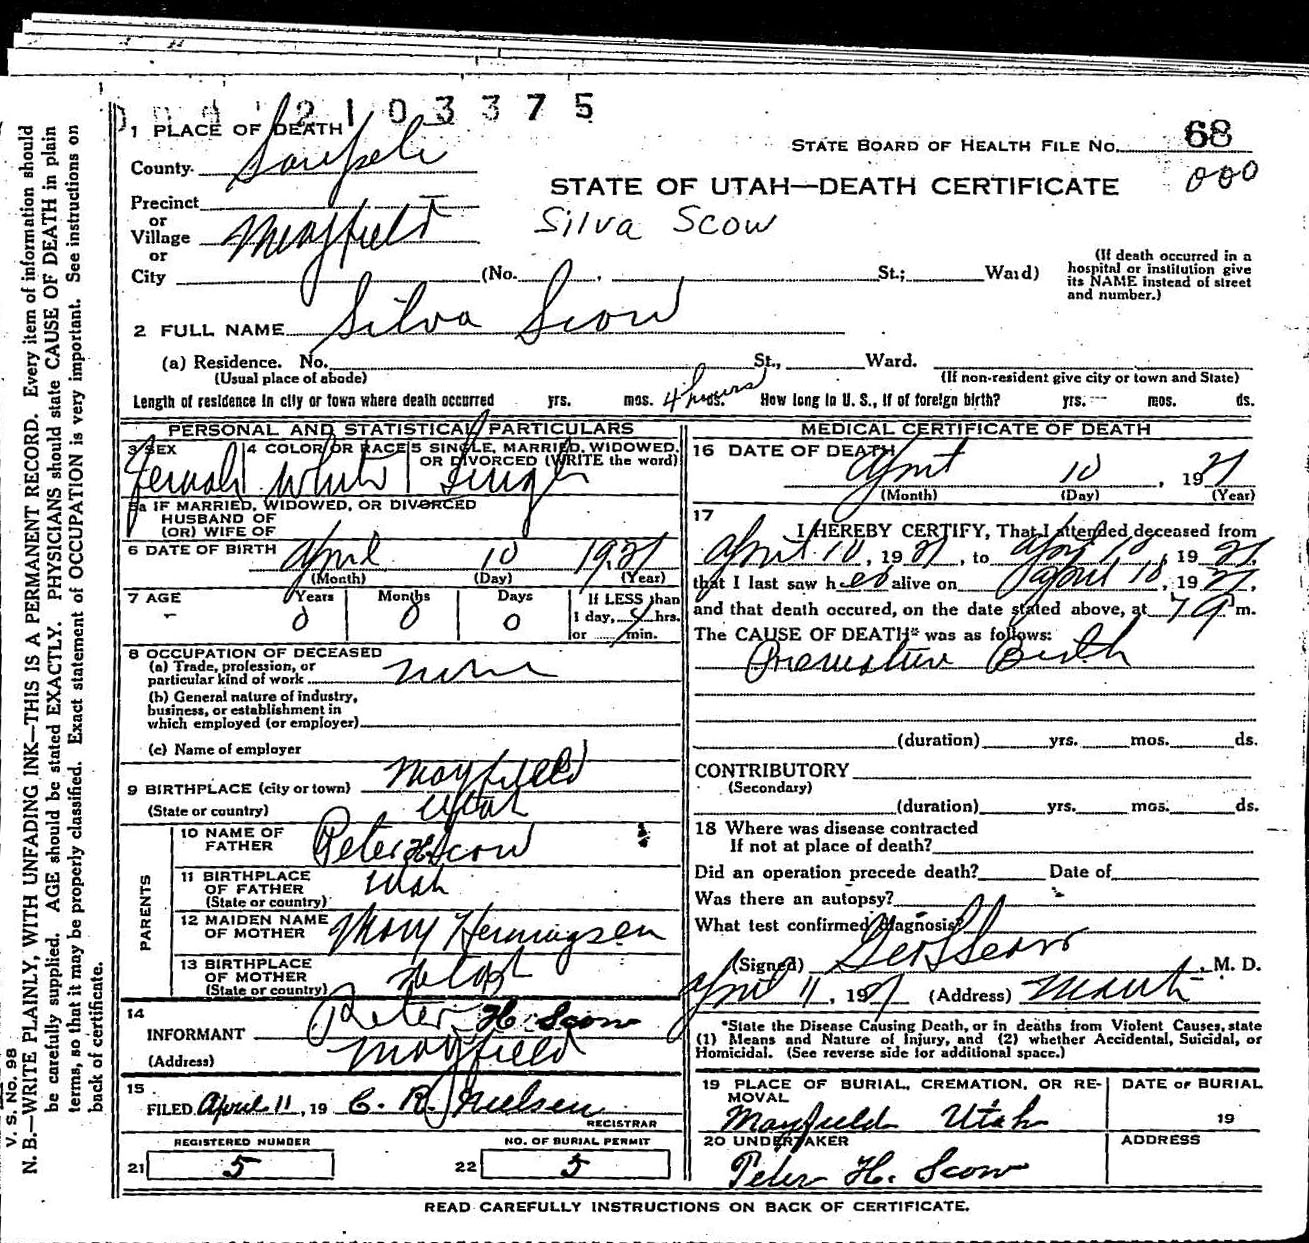 2103375
1 PLACE OF DEATH
STATE BOARD OF HEALTH FILE No. 68
000
County Sanpete
STATE OF UTAH—DEATH CERTIFICATE
Precinct
or
Village Mayfield
Silva Scow
or
City (No. St.; Ward)
(If death occurred in a hospital or institution give its NAME instead of street and number.)
2 FULL NAME Silva Scow
(a) Residence. No. St., Ward.
(Usual place of abode) (If non-resident give city or town and State)
Length of residence in city or town where death occurred yrs. mos. 4 hours ds. How long in U. S., if of foreign birth? yrs. mos. ds.
PERSONAL AND STATISTICAL PARTICULARS
3 SEX 4 COLOR OR RACE 5 SINGLE, MARRIED, WIDOWED,
OR DIVORCED (WRITE the word)
Female White Single
5a IF MARRIED, WIDOWED, OR DIVORCED
HUSBAND OF
(OR) WIFE OF
6 DATE OF BIRTH April 10 1921
(Month) (Day) (Year)
7 AGE Years Months Days If LESS than
0 0 0 1 day, 4 hrs.
or min.
8 OCCUPATION OF DECEASED
(a) Trade, profession, or
particular kind of work none
(b) General nature of industry,
business, or establishment in
which employed (or employer)
(c) Name of employer
9 BIRTHPLACE (city or town) Mayfield
(State or country) Utah
PARENTS
10 NAME OF
FATHER Peter H. Scow
11 BIRTHPLACE
OF FATHER Utah
(State or country)
12 MAIDEN NAME
OF MOTHER Mary Henningsen
13 BIRTHPLACE
OF MOTHER Utah
(State or country)
14
INFORMANT Peter H. Scow
(Address) Mayfield
15
FILED April 11, 19 C. R. Nielsen
REGISTRAR
REGISTERED NUMBER NO. OF BURIAL PERMIT
21 5 22 5
MEDICAL CERTIFICATE OF DEATH
16 DATE OF DEATH
April 10, 1921
(Month) (Day) (Year)
17
I HEREBY CERTIFY, That I attended deceased from
April 10, 1921, to April 10, 1921,
that I last saw her alive on April 10, 1921,
and that death occured, on the date stated above, at 7 m.
The CAUSE OF DEATH* was as follows:
Premature Birth
(duration) yrs. mos. ds.
CONTRIBUTORY
(Secondary)
(duration) yrs. mos. ds.
18 Where was disease contracted
If not at place of death?
Did an operation precede death? Date of
Was there an autopsy?
What test confirmed diagnosis?
(Signed) , M. D.
April 11, 1921 (Address) Manti
*State the Disease Causing Death, or in deaths from Violent Causes, state
(1) Means and Nature of Injury, and (2) whether Accidental, Suicidal, or
Homicidal. (See reverse side for additional space.)
19 PLACE OF BURIAL, CREMATION, OR RE- DATE OF BURIAL
MOVAL
Mayfield Utah 19
20 UNDERTAKER ADDRESS
Peter H. Scow
READ CAREFULLY INSTRUCTIONS ON BACK OF CERTIFICATE.
V. S. No. 98
N. B.—WRITE PLAINLY, WITH UNFADING INK—THIS IS A PERMANENT RECORD. Every item of information should
be carefully supplied. AGE should be stated EXACTLY. PHYSICIANS should state CAUSE OF DEATH in plain
terms, so that it may be properly classified. Exact statement of OCCUPATION is very important. See instructions on
back of certificate.